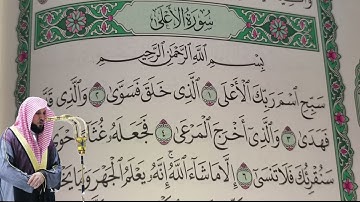 سُورَةُ الأَعْلَى
بِسْمِ اللَّهِ الرَّحْمَٰنِ الرَّحِيمِ
سَبِّحِ اسْمَ رَبِّكَ الْأَعْلَى ١ الَّذِي خَلَقَ فَسَوَّىٰ ٢ وَالَّذِي
فَهَدَىٰ ٣ وَالَّذِي أَخْرَجَ الْمَرْعَىٰ ٤ فَجَعَلَهُ غُثَاءً
سَنُقْرِئُكَ فَلَا تَنسَىٰ ٦ إِلَّا مَا شَاءَ اللَّهُ إِنَّهُ يَعْلَمُ الْجَهْرَ وَمَا